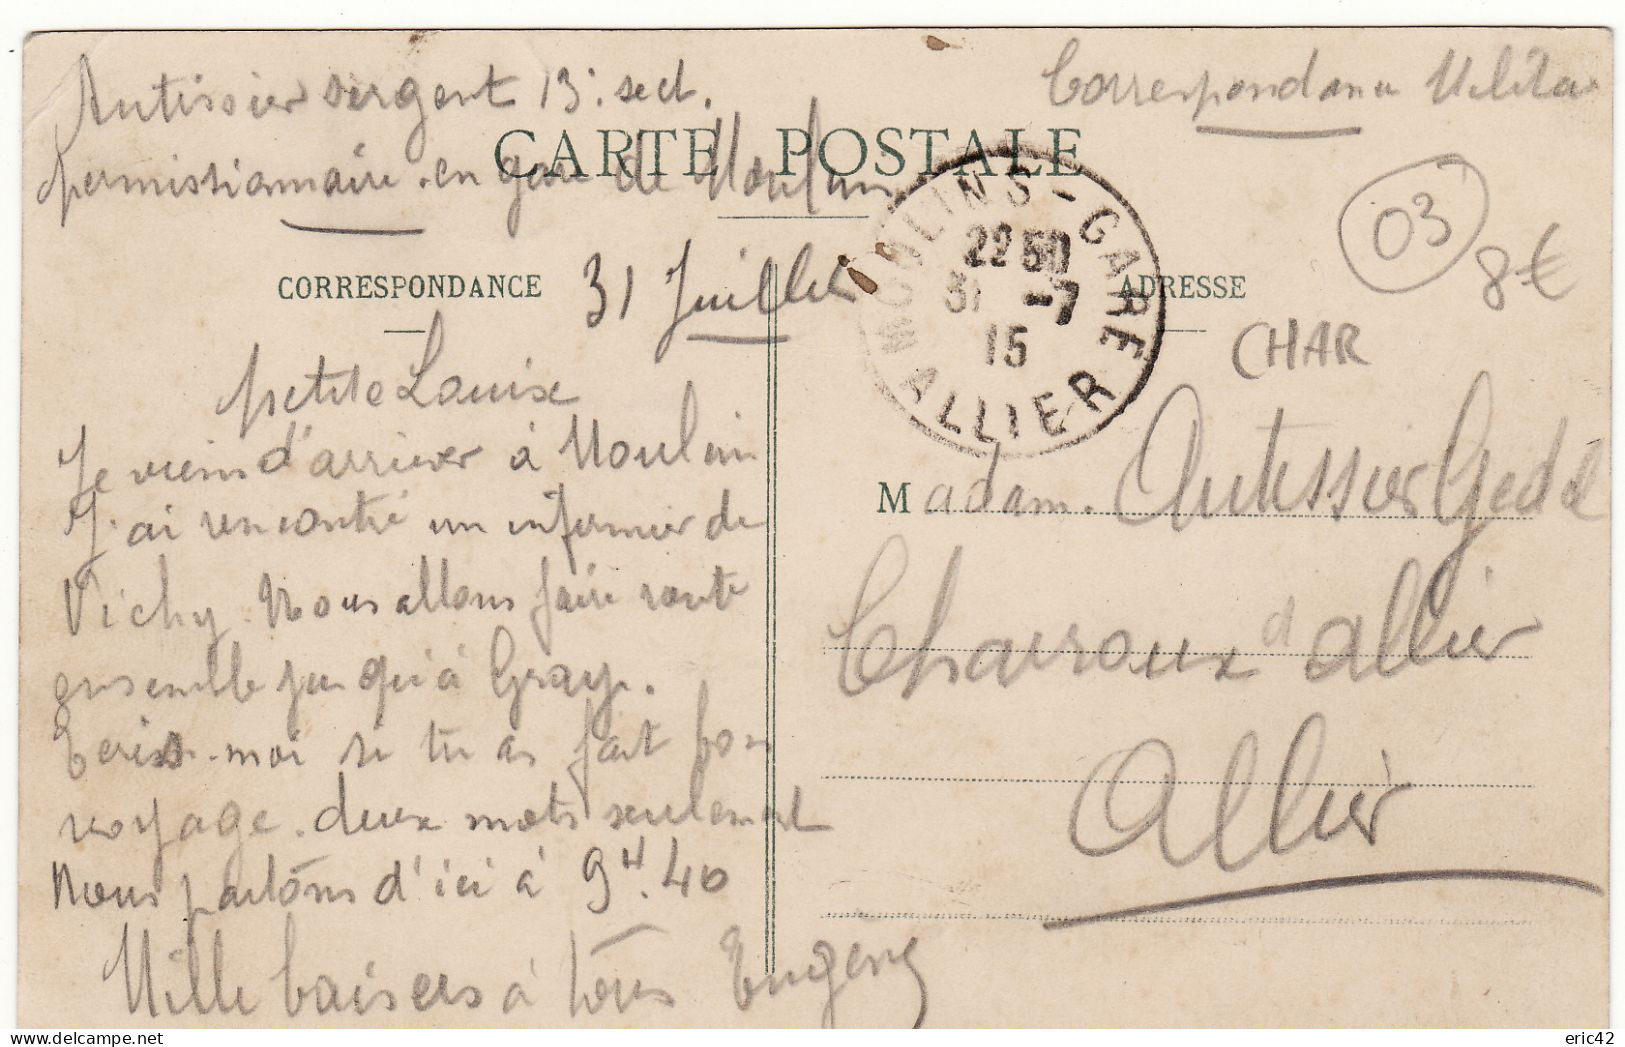 Autissier sergent 13e sect.
permissionnaire en gare de Moulin
Correspondance Milita
CARTE POSTALE
03
8€
MOULINS-GARE
22 50
31 -7
15
ALLIER
CORRESPONDANCE
31 Juillet
ADRESSE
CHAR
petite Louise
Je viens d'arriver à Moulin
J'ai rencontré un infirmier de
Vichy. Nous allons faire route
ensemble jusqu'à Gray.
Ecris-moi si tu as fait bon
voyage. deux mots seulement
Nous partons d'ici à 9H.40
Mille baisers à tous Eugène
Madam. Autissier
Charroux d'allier
Allier
eric42